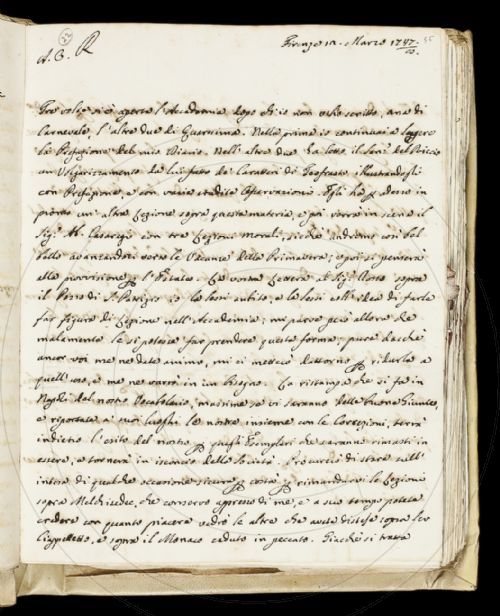 22
A. C. R
Firenze 12. Marzo 1747. 35
Tre volte si è aperta l'Accademia dopo di io non vi ho scritto, una di
Carnevale, l'altre due di Quaresima. Nella prima io continuai a leggere
la Prefazione del mio Diario. Nell'altre due ha letto il
un Volgarizzamento da lui fatto de' Caratteri di Teofrasto illustrandogli
con Prefazione, e con varie erudite Osservazioni. Egli ha p. adesso in
pronto un'altra Lezione sopra questa materia, e poi verrà in scena il
Sig. Ab. con tre Lezioni Morali, sicchè andremo così bel
bello avanzandoci verso le Vacanze della Primavera; e poi si penserà
alla provvisione p. l'Estate. La vostra Lettera al Sig. sopra
il Pozzo di S. Patrizio io la lessi subito, e la lessi coll'idea di farle
far figura di Lezione nell'Accademia; mi parve però allora che
malamente le si potesse far prendere questa forma; pure dacchè
ancor voi me ne date animo, mi ci metterò dattorno p. ridurla a
quell'uso, e me ne varrò in un bisogno. La ristampa che si fa in
Napoli del nostro Vocabolario, massime se vi saranno delle buone Giunte,
e riportate a' suoi luoghi le nostre insieme con le Correzioni, terrà
indietro l'esito del nostro p. quegli Esemplari che saranno rimasti in
essere, e tornerà in iscapito della Società. Procurerò di stare sull'
intesa di qualche occasione sicura p. costà p. rimandarvi la Lezione
sopra Melchisedec, che conservo appresso di me; e a suo tempo potete
credere con quanto piacere vedrò le altre che avete distese sopra Ser
Ciappelletto, e sopra il Monaco caduto in peccato. Giacchè si tratta